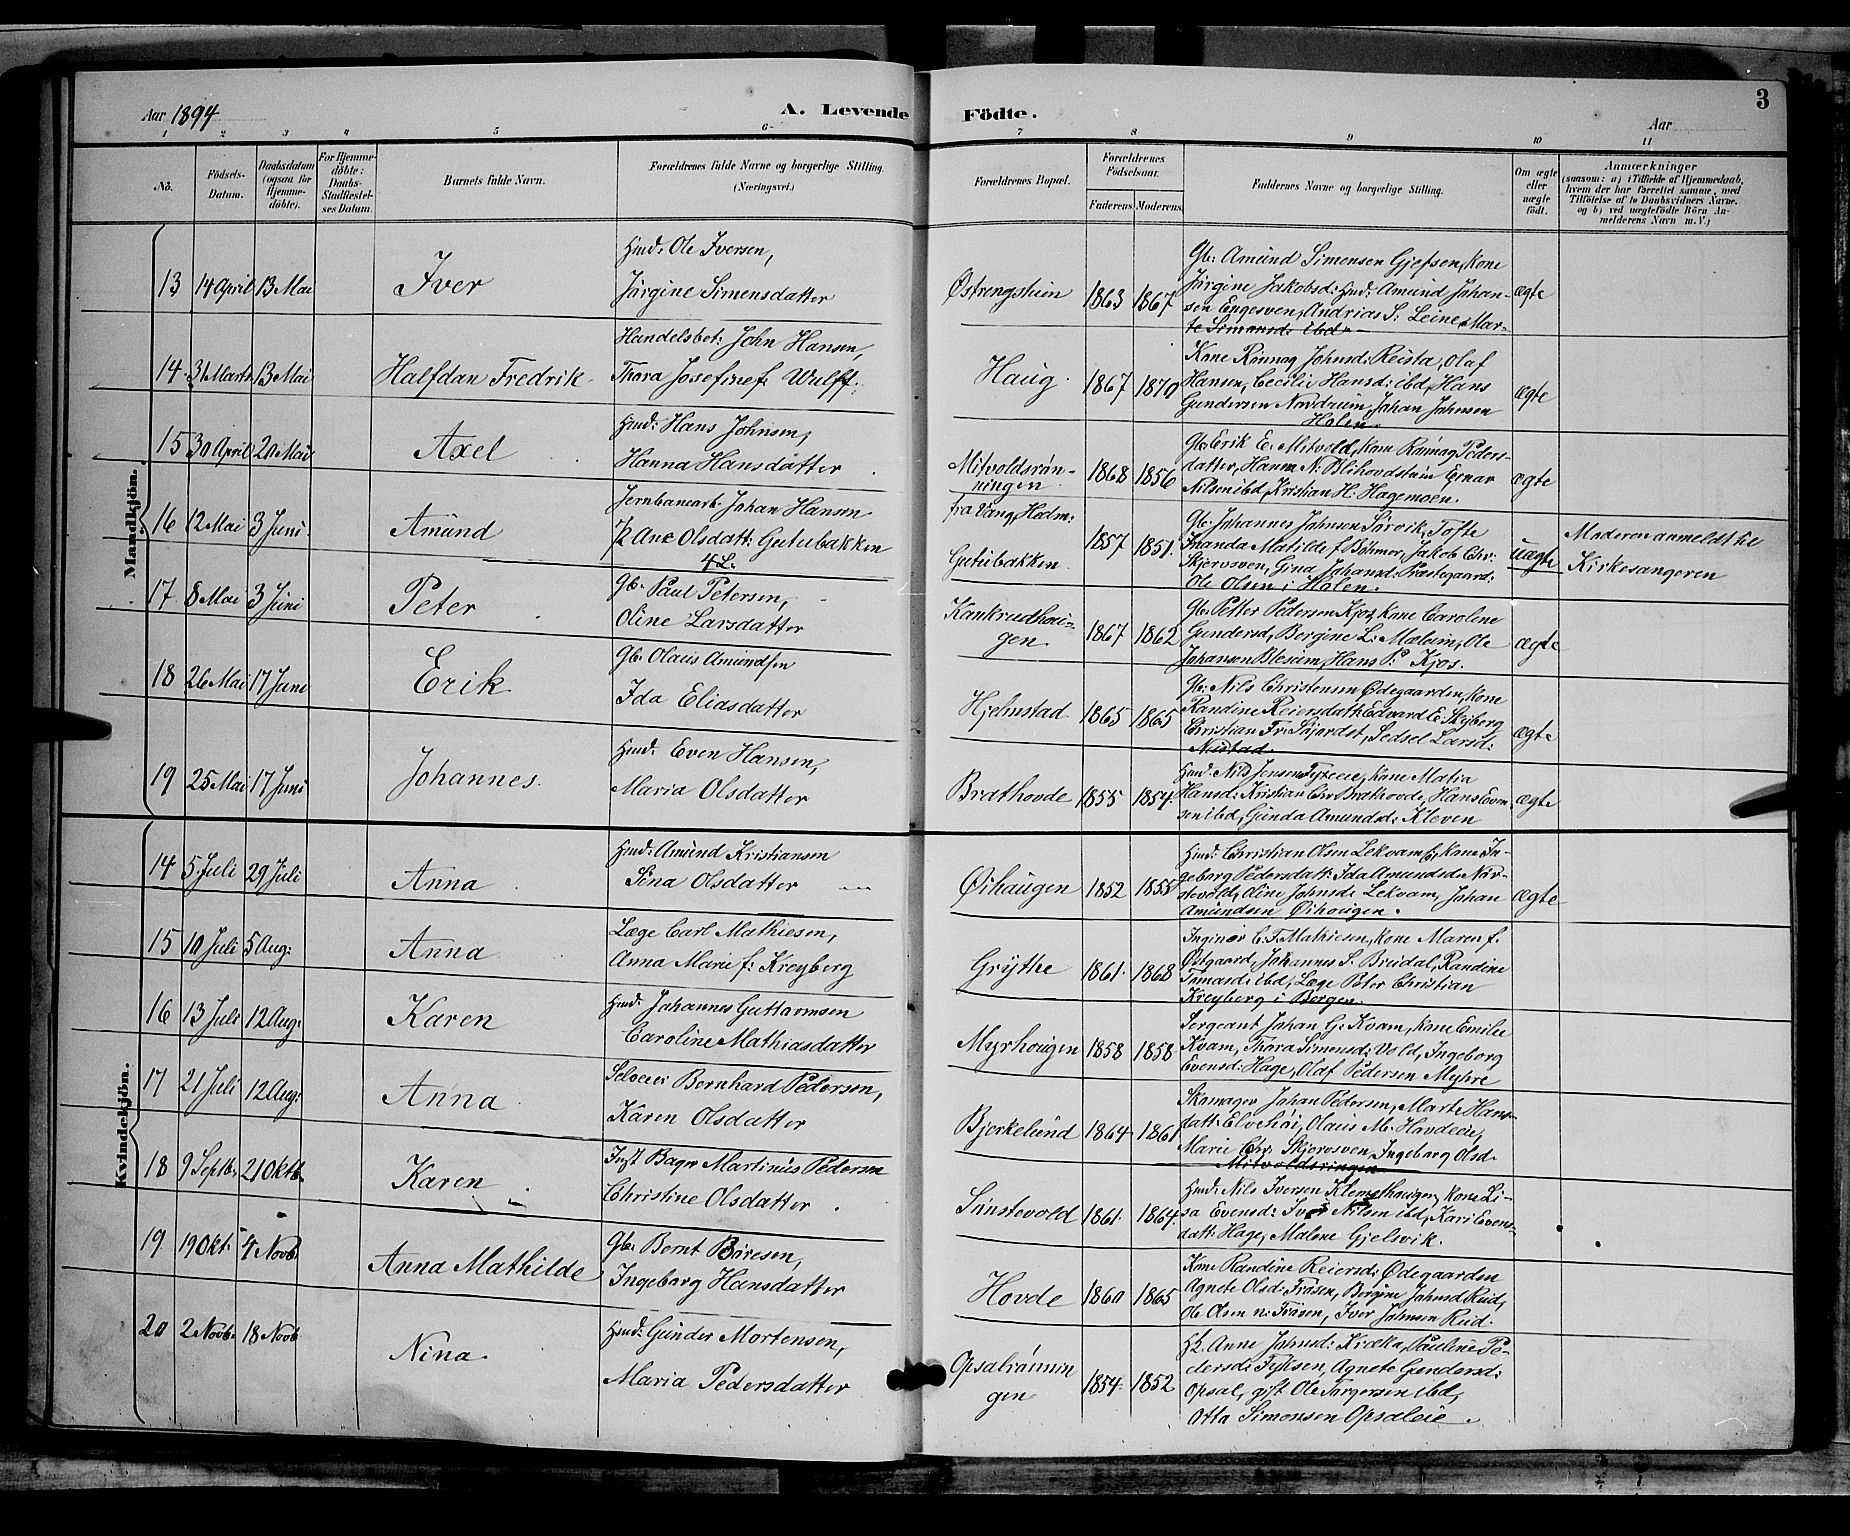 Aar 1894
A. Levende Födte.
Aar
3
1 2 3 4 5 6 7 8 9 10 11
No.
Födsels-Datum.
Daabsdatum (ogsaa for Hjemme-døbte).
For Hjemme-døbte: Daabs-Stadfæstel-ses Datum.
Barnets fulde Navn.
Forældrenes fulde Navne og borgerlige Stilling.
(Næringsvei.)
Forældrenes Bopæl.
Forældrenes Födselsaar.
Faderens. Moderens.
Faddernes Navne og borgerlige Stilling.
Om ægte eller uægte født.
Anmærkninger
(saasom: a) i Tilfælde af Hjemmedaab, hvem der har forrettet samme, med Tilføielse af to Daabsvidners Navne, og b) ved uægtefødte Børn Anmelderens Navn m. V.)
Mandkjön.
13 14 April 13 Mai
Iver
Hmd: Ole Iversen,
Jörgine Simensdatter
Østrengstuen
1863 1867
Gb: Amund Simensen Gjefsen, Kone
Jörgine Jakobsd: Hmd: Amund Johan-
sen Engesven, Andrias S: Leine, Mar-
te Simensd: ibd
ægte
14. 31 Marts 13 Mai
Halfdan Fredrik
Handelsbet: John Hansen,
Thora Josefine f: Wulff.
Haug.
1867 1870
Kone Rönnog Johnsd: Reista, Olaf
Hansen, Cecilie Hansd: ibd, Hans
Gundersen Nordrum, Johan Johnsen
Holen.
ægte
15 30 April 20 Mai
Axel
Hmd: Hans Johnsen,
Hanna Hansdatter
Mitvoldsrön-
ningen.
1868 1856
Gb: Erik E. Mitvold, Kone Rönnog Peders-
datter, Hanna N: Blihovdstuen Einar
Nilsen ibd, Kristian H: Hagemoen.
ægte
16 12 Mai 3 Juni
Amund
Jernbanearb: Johan Hansen
Pz Ane Olsdatt: Gutubakken
4 L.
fra Vang, Hedm:
Gutubakken
1857 1851.
Gb: Johannes Johnsen Sörvik, Tofte
Inanda Matilde f Böhmer, Jakob Chr:
Skjerosven, Gina Johansd: Prastegaard:
Ole Olsen i Holen.
uægte
Moderen anmeldt til
Kirkesangeren
17 8 Mai 3 Juni
Peter
Gb: Paul Petersen,
Oline Larsdatter
Kankrudhau-
gen.
1867 1862
Gb: Petter Pedersen Kjos, Kone Carolene
Gundersd, Bergine L: Mælum, Ole
Johansen Blesum, Hans P: Kjos.
ægte
18 26 Mai 17 Juni
Erik
Gb: Olaus Amundsen
Ida Eliasdatter
Hjelmstad
1865 1865
Gb: Nils Christensen Ødegaarden, Kone
Randine Reiersdatt: Edvard E: Skjberg
Christian Fr: Skjordst, Sedsel Larsd:
Nustad.
ægte
19 25 Mai 17 Juni
Johannes.
Hmd: Even Hansen,
Maria Olsdatter
Brathovde
1855 1854.
Hmd: Nils Jensen Fyxeeie, Kone Matia
Hansd: Kristian Chr Brathovde, Hans Even-
sen ibd, Gunda Amundsd: Kleven
ægte
Kvindekjön.
14 5 Juli 29 Juli
Anna
Hmd: Amund Kristiansen
Sina Olsdatter
Øihaugen
1852 1855
Hmd: Christian Olsen Lekvam, Kone In-
geborg Pedersdatt: Ida Amundsd: Nör-
stevold, Oline Johnsd: Lekvam, Johan
Amundsen Øihougen.
ægte
15 10 Juli 5 Aug:
Anna
Læge Carl Mathiesen,
Anna Marie f: Kreyberg
Grythe
1861. 1868
Inginör C. F. Mathiesen, Kone Maren f.
Østgaard, Johannes S. Bredal, Randine
Tomasd: ibd, Læge Peter Christian
Kreyberg i Bergen.
16 13 Juli 12 Aug:
Karen
Hmd: Johannes Guttormsen
Caroline Mathiasdatter
Myrhougen
1858 1858
Sergeant Johan G: Kvam, Kone Emilie
Kvam, Thora Simensd: Vold, Ingeborg
Evensd: Hage, Olaf Pedersen Myhre
17 21 Juli 12 Aug:
Anna
Selveier Bernhard Pedersen,
Karen Olsdatter
Bjerkelund
1864 1861
Skomager Johan Pedersen, Marte Hans-
datt: Elvehöi, Olaus M: Hovdeeie,
Marie Chr: Skjerosven, Ingeborg Olsd.
Mitvoldsringen
18 9 Septb. 21 Oktb.
Karen
Inst Bager Martinus Pedersen
Christine Olsdatter
Sinstevold
1861. 1864.
Hmd: Nils Iversen Klemethaugen, Kone Li-
sa Evensd: Iver Nilsen ibd, Kari Evens-
datt: Hage, Malene Gjelsvik.
19 19 Okt: 4 Novb.
Anna Mathilde
Gb: Bernt Böresen,
Ingeborg Hansdatter
Hovde
1860 1865
Kone Randine Reiersd: Ødegaarden
Agnete Olsd: Frösen, Bergine Johnsd Ruid,
Ole Olsen n: Frösen, Iver Johnsen Ruid.
20 2 Novb. 18 Novb
Nina.
Hmd: Gunder Mortensen,
Maria Pedersdatter
Opsalrönnin
gen
1854. 1852
Pz. Anne Johnsd: Kræka, Pauline Pe-
dersd: Fyksen, Agnete Gundersd:
Opsal, gift Ole Torgersen ibd,
Otta Simonsen Opsaleie.